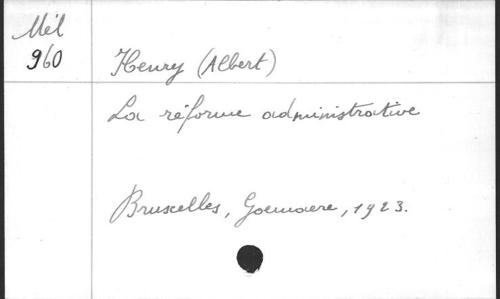 Mél
960
Henry (Albert)
La réforme administrative
Bruxelles, Goemaere, 1923.